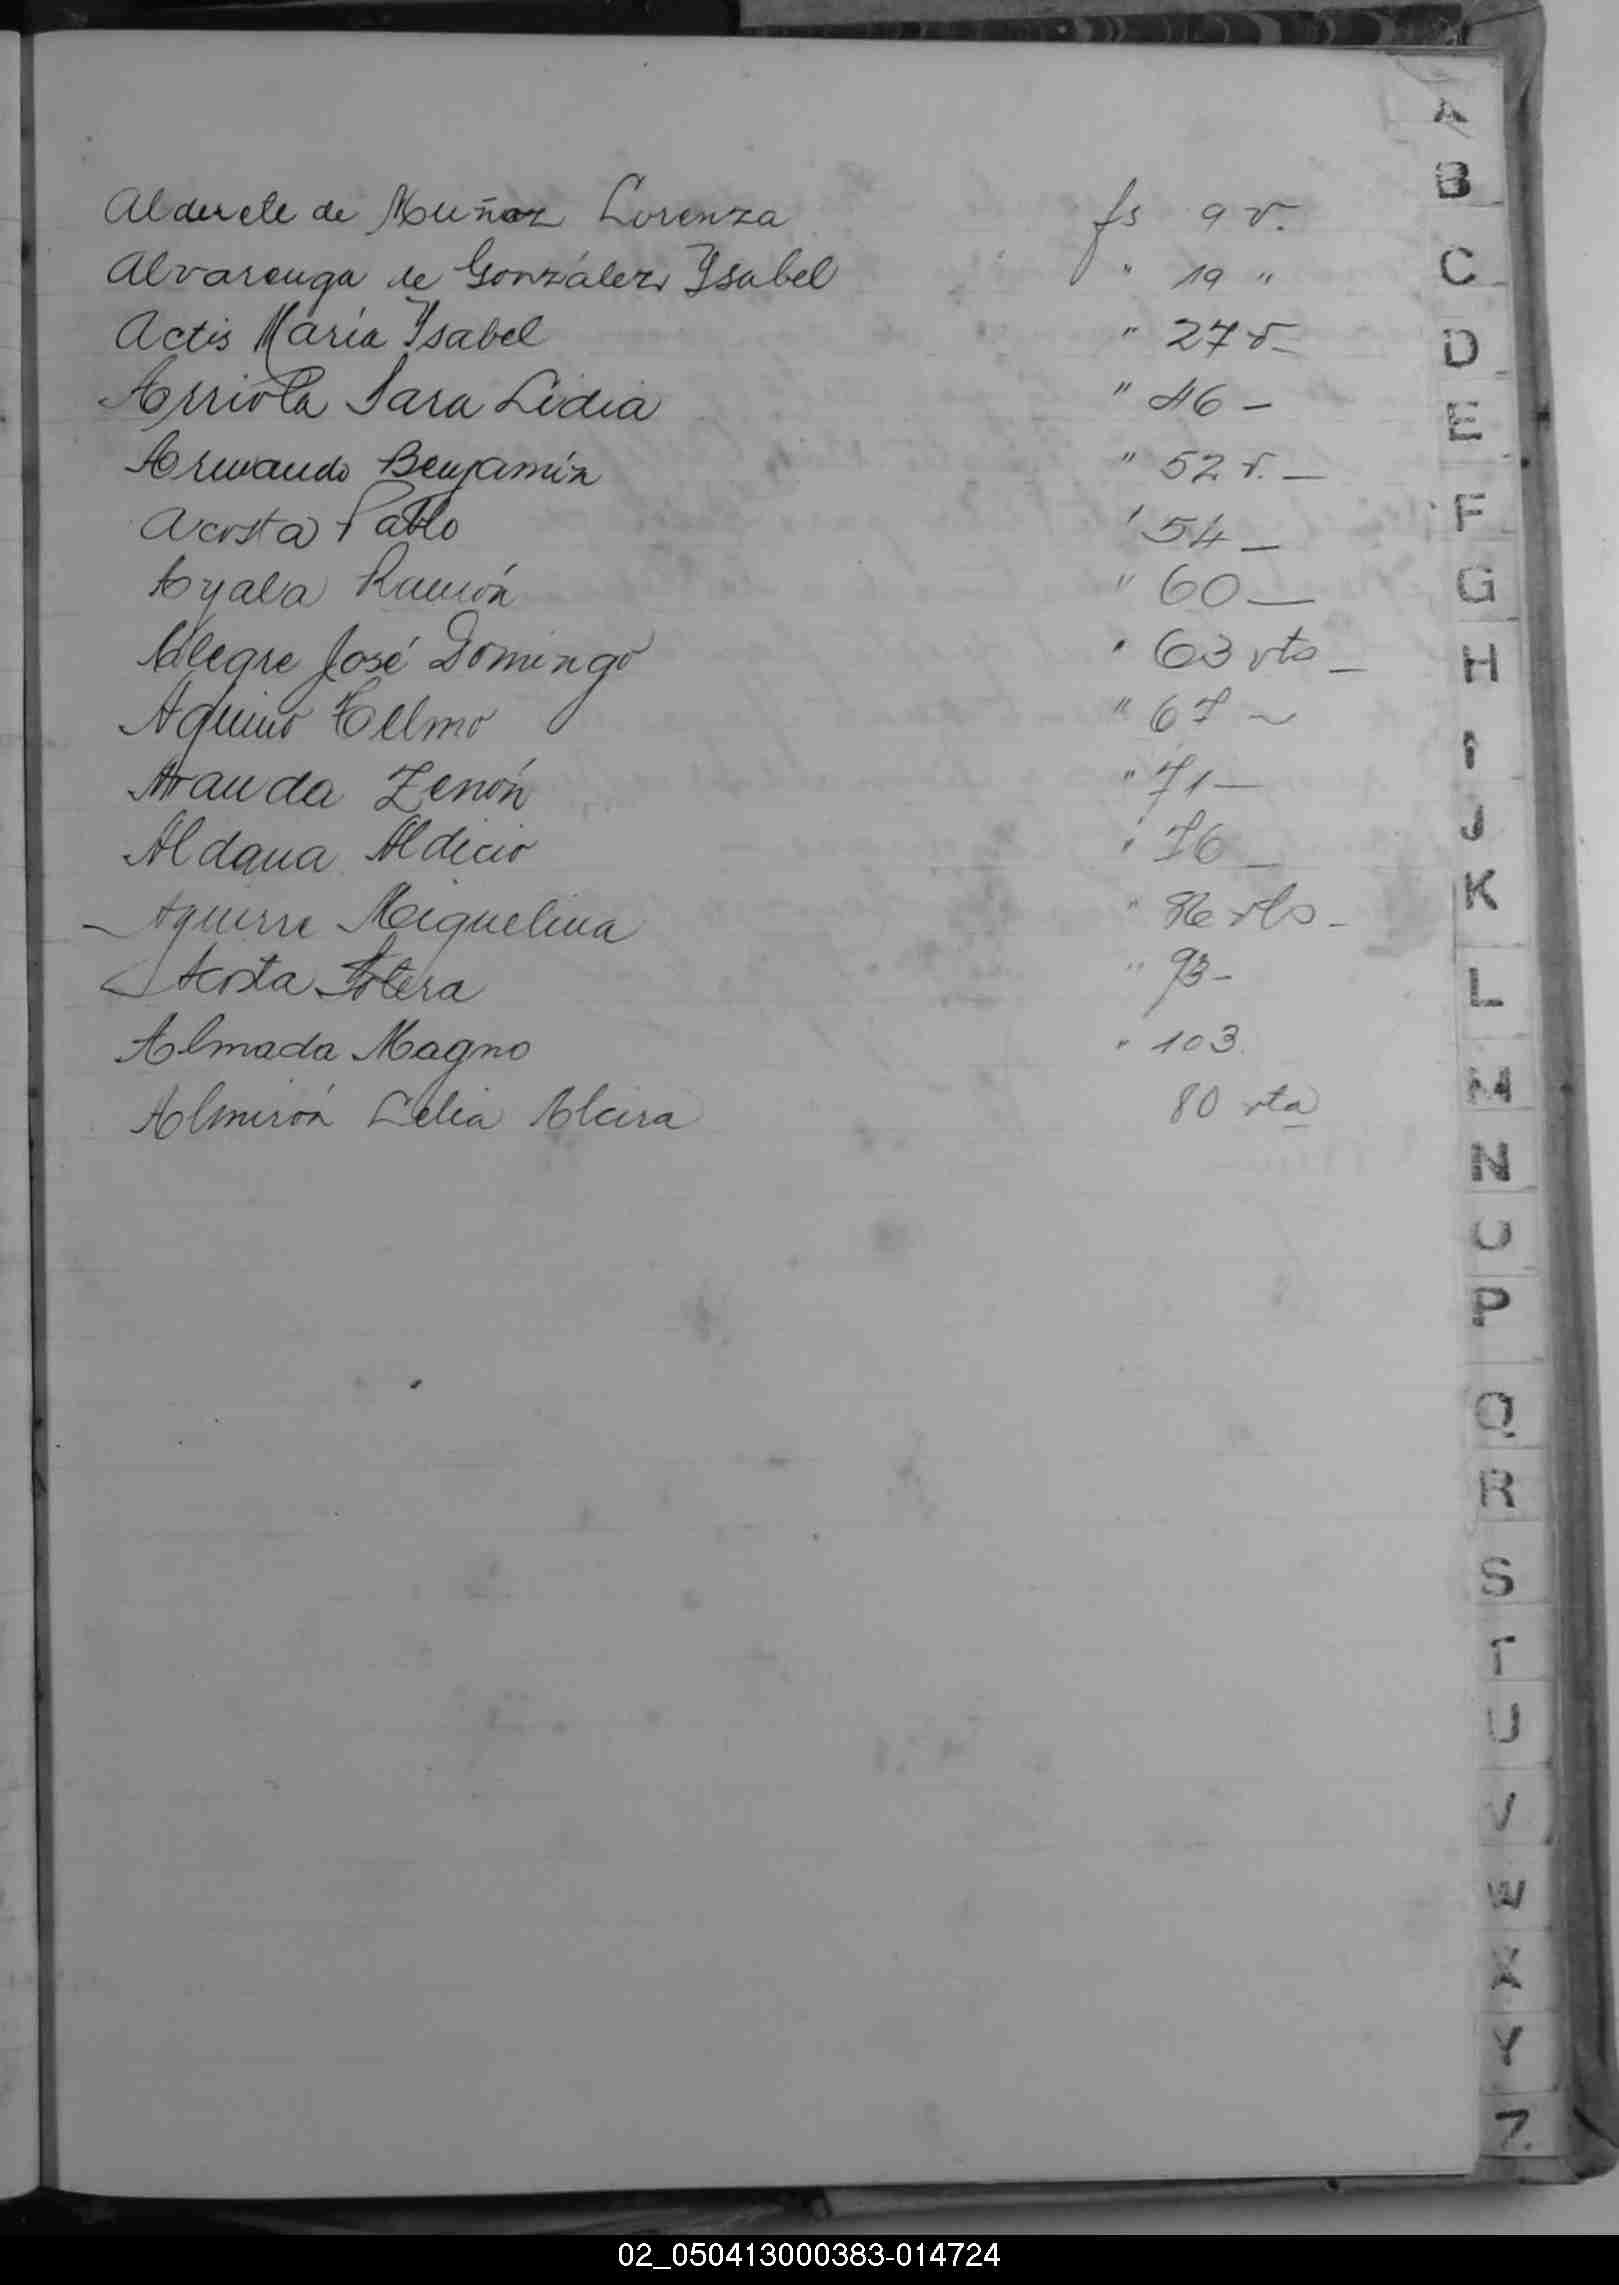 Alderete de Muñoz Lorenza fs 9 v.
Alvarenga de González Ysabel " 19 "
Actis María Ysabel " 27 v—
Arriola Sara Lidia " 46 —
Armando Benjamín " 52 v. —
Acosta Pablo ' 54 —
Ayala Ramón " 60 —
Alegre José Domingo " 63 vta —
Aquino Telmo " 67 —
Aranda Zenón " 71 —
Aldana Aldicio " 76 —
Aguirre Miguelina " 86 vta —
Acosta Sotera " 93 —
Almada Magno " 103
Almirón Celia Alcira 80 vta
A
B
C
D
E
F
G
H
I
J
K
L
M
N
O
P
Q
R
S
T
U
V
W
X
Y
Z
02_050413000383-014724